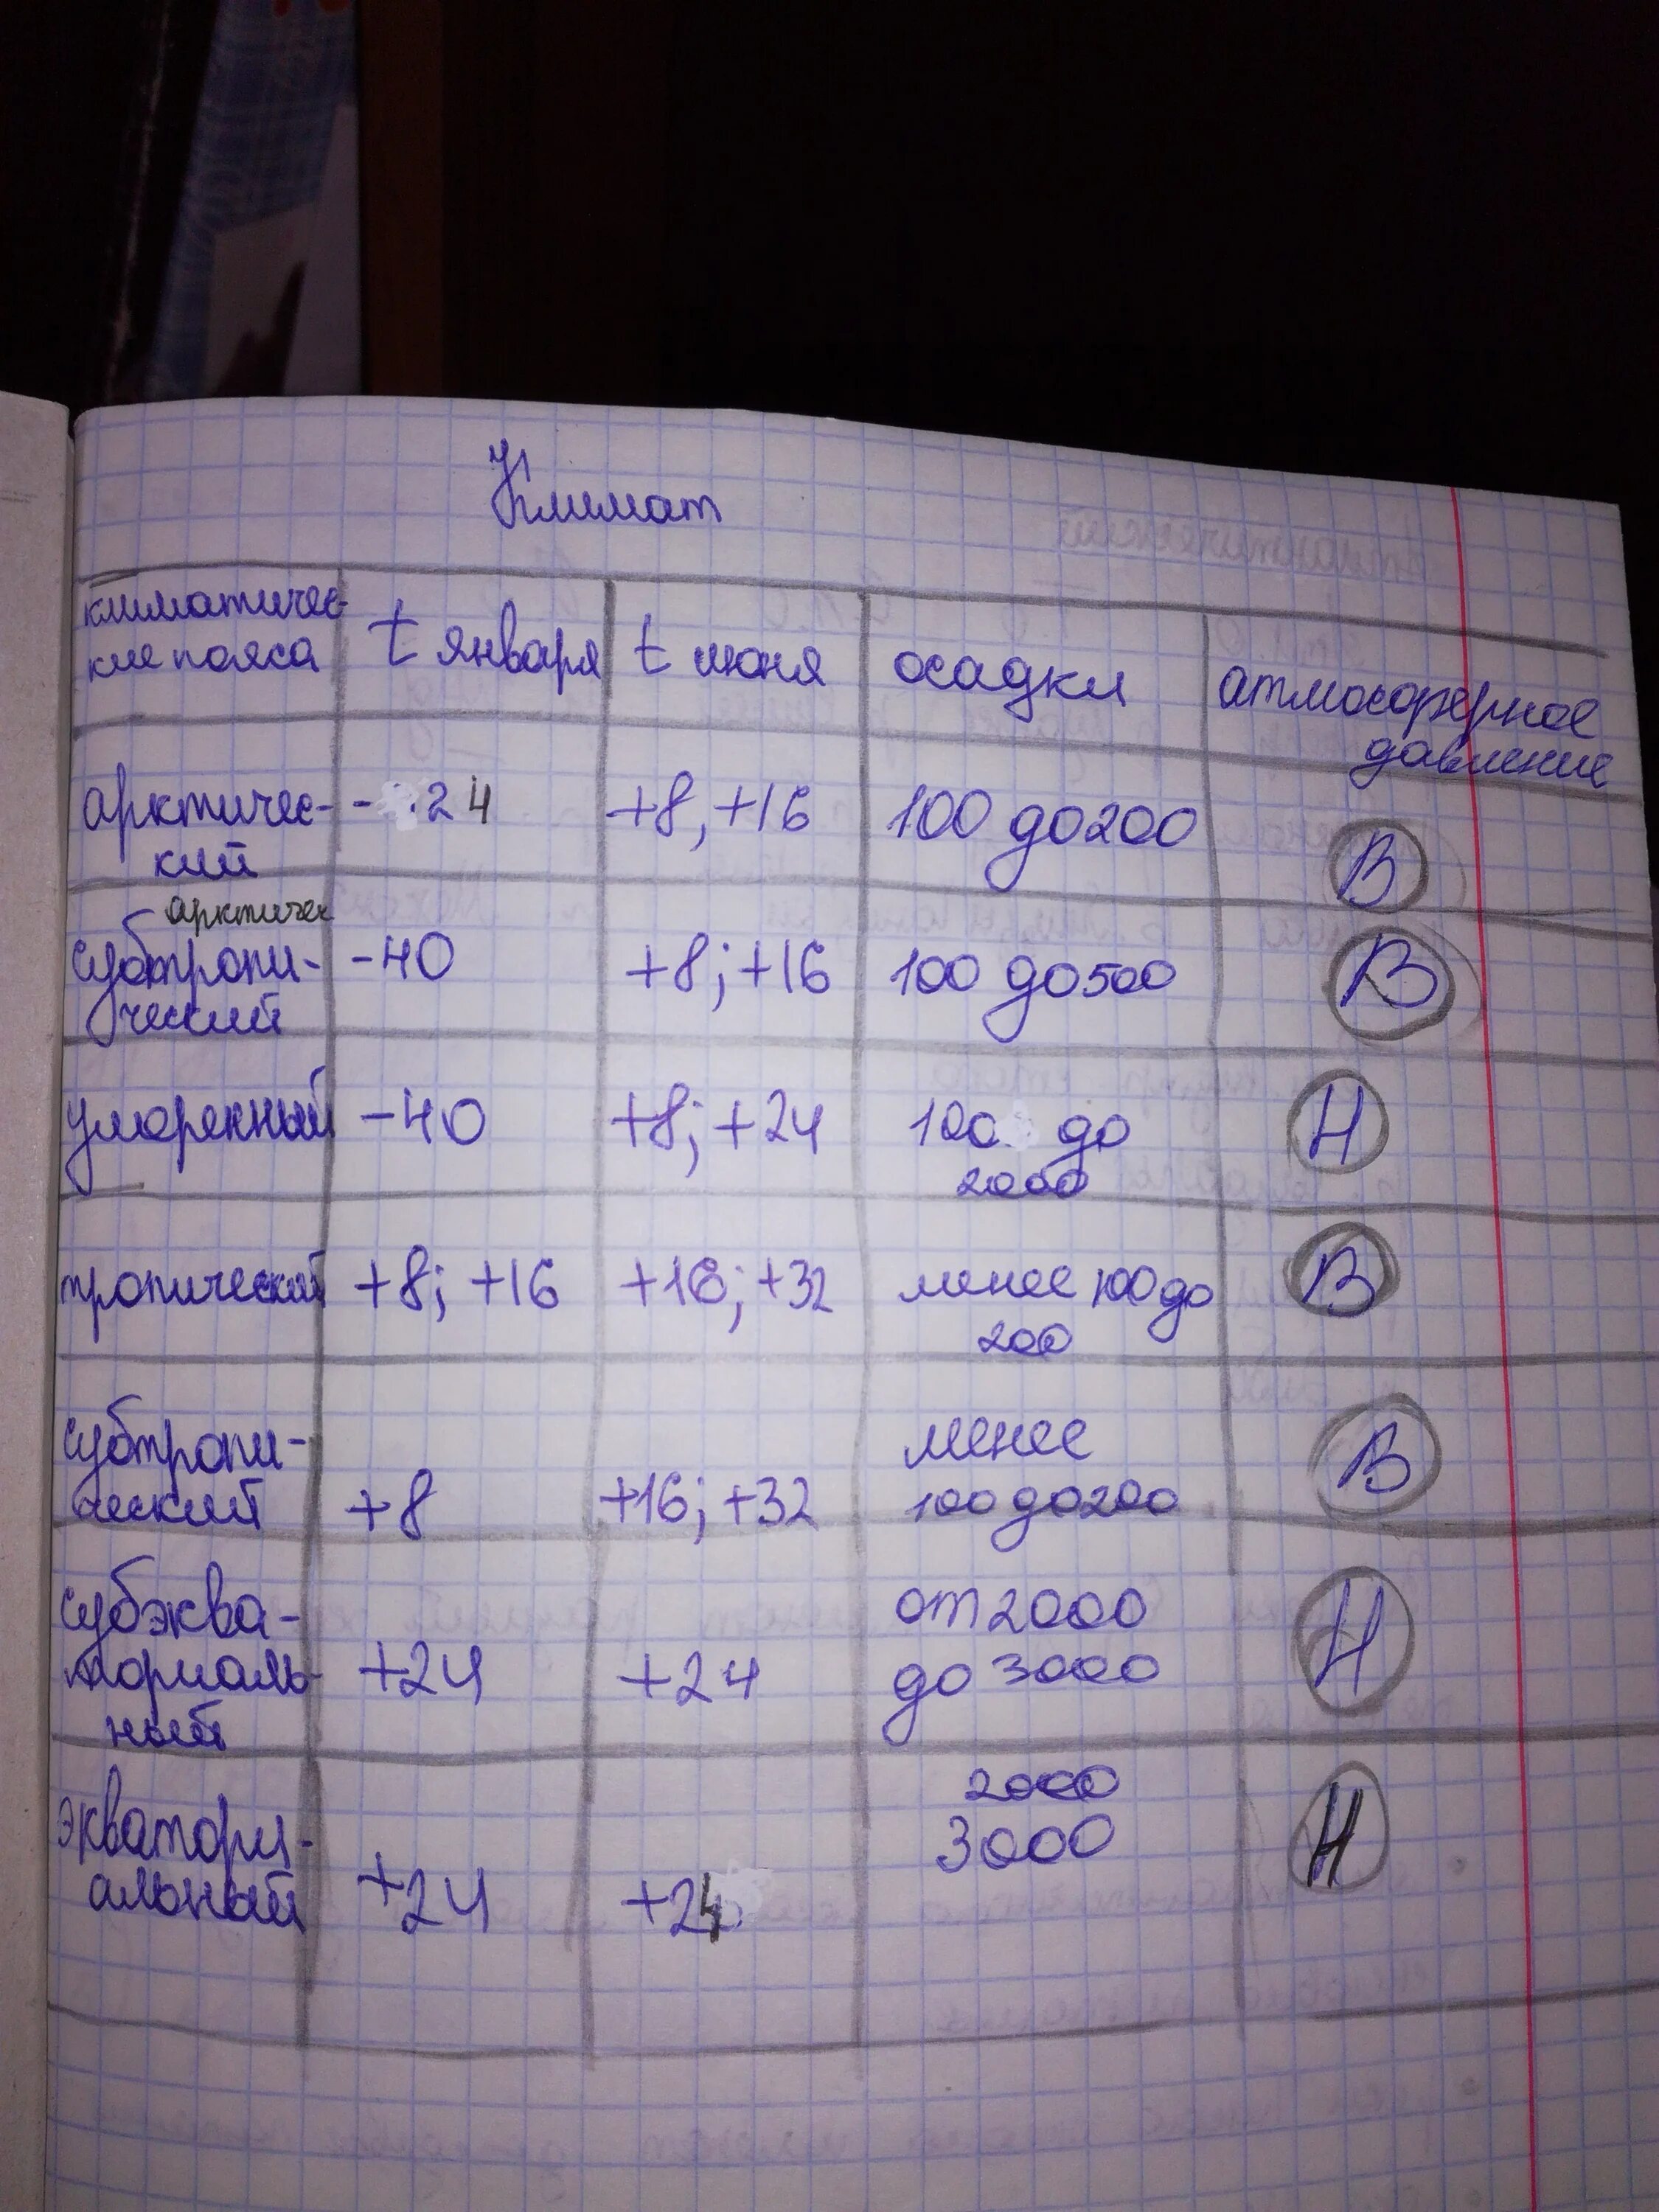 Климат
климатичес-
кие пояса
t января
t июня
осадки
атмосферное
давление
арктичес-
кий
-24
+8, +16
100 до 200
В
арктичес
субтропи-
ческий
-40
+8; +16
100 до 500
В
умеренный
-40
+8; +24
100 до
2000
Н
тропический
+8; +16
+16; +32
менее 100 до
200
В
субтропи-
ческий
+8
+16; +32
менее
100 до 200
В
субэква-
ториаль-
ный
+24
+24
от 2000
до 3000
Н
экватори-
альный
+24
+24
2000
3000
Н